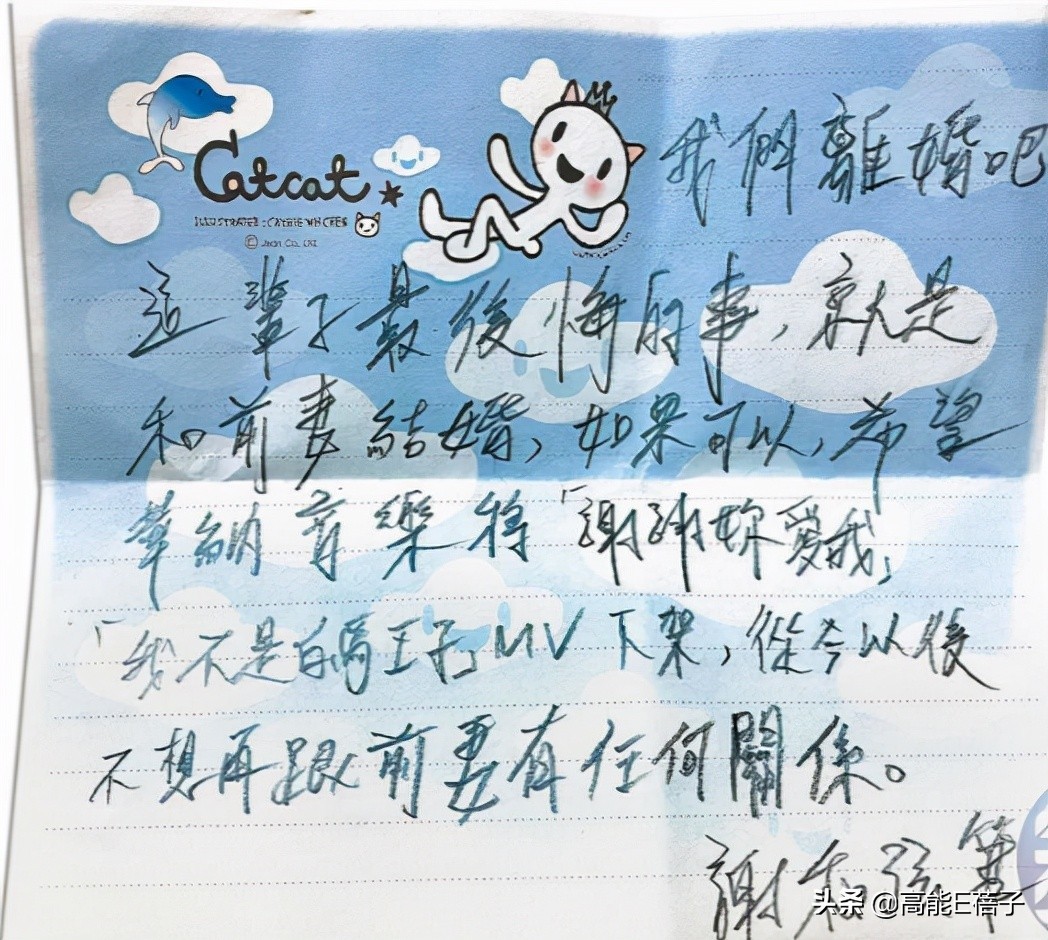 Catcat
我們離婚吧
這輩子最後悔的事,就是
和前妻結婚,如果可以,希望
華納音樂將「謝謝妳愛我」
「我不是白馬王子」MV下架,從今以後
不想再跟前妻有任何關係。
謝和弦筆
头条 @高能E蓓子